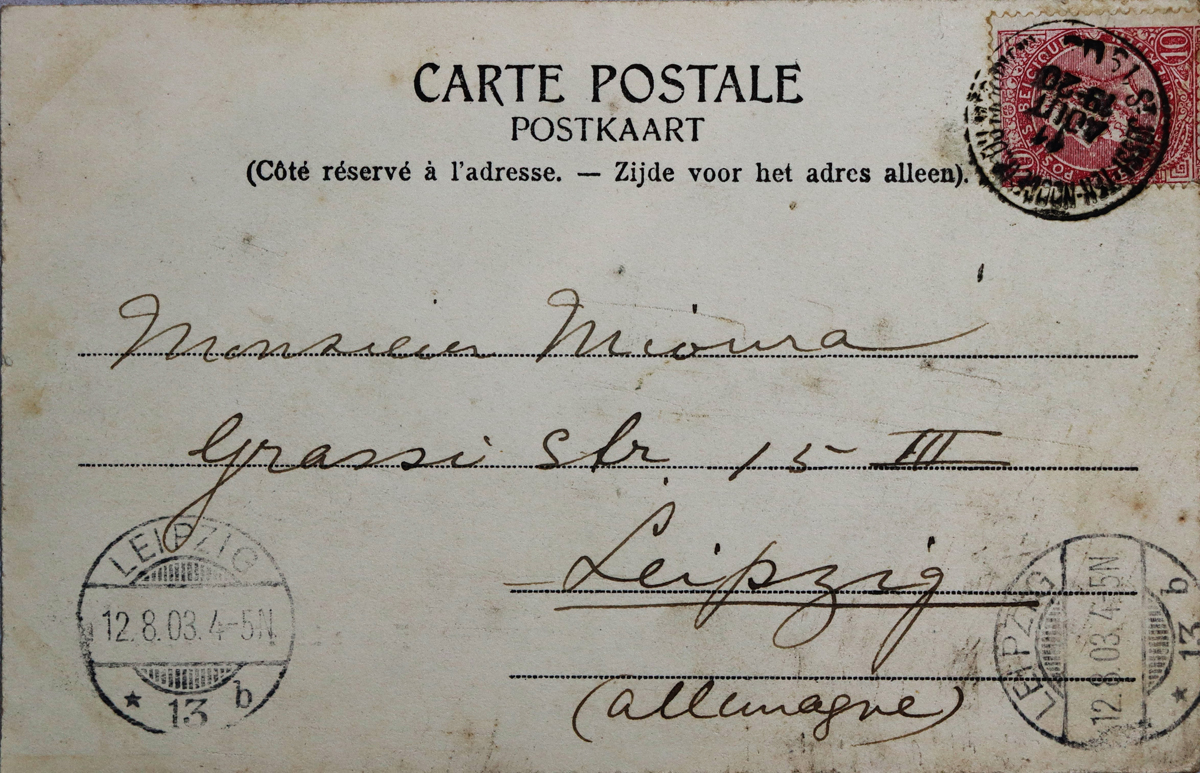 CARTE POSTALE
POSTKAART
(Côté réservé à l'adresse. — Zijde voor het adres alleen).
10
BELGIQUE
11
AOUT
19-20
Monsieur Mioura
Grassi Str 15 III
Leipzig
(allemagne)
LEIPZIG
12.8.03.4-5N.
★ 13 b
LEIPZIG
12.8.03.4-5N
★ 13 b